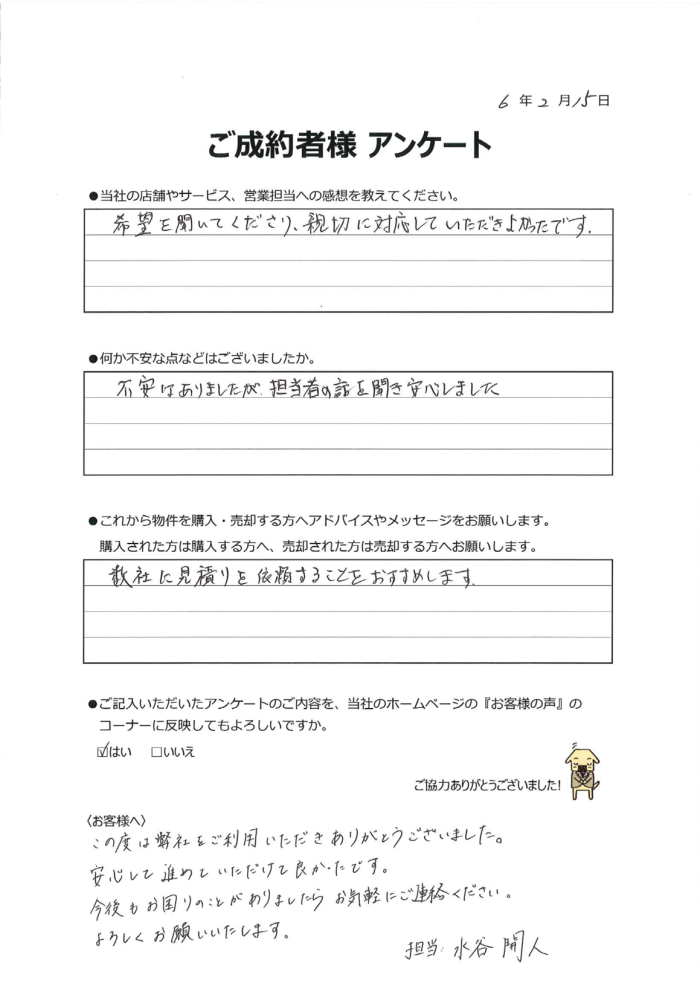 6年2月15日
ご成約者様 アンケート
●当社の店舗やサービス、営業担当への感想を教えてください。
希望を聞いてくださり、親切に対応していただきよかったです.
●何か不安な点などはございましたか。
不安はありましたが、担当者の話を聞き安心しました
●これから物件を購入・売却する方へアドバイスやメッセージをお願いします。
購入された方は購入する方へ、売却された方は売却する方へお願いします。
数社に見積りを依頼することをおすすめします.
●ご記入いただいたアンケートのご内容を、当社のホームページの『お客様の声』の
コーナーに反映してもよろしいですか。
☑はい □いいえ
ご協力ありがとうございました!
〈お客様へ〉
この度は弊社をご利用いただきありがとうございました。
安心して進めていただけて良かったです。
今後もお困りのことがありましたらお気軽にご連絡ください。
よろしくお願いいたします。
担当: 水谷 開人